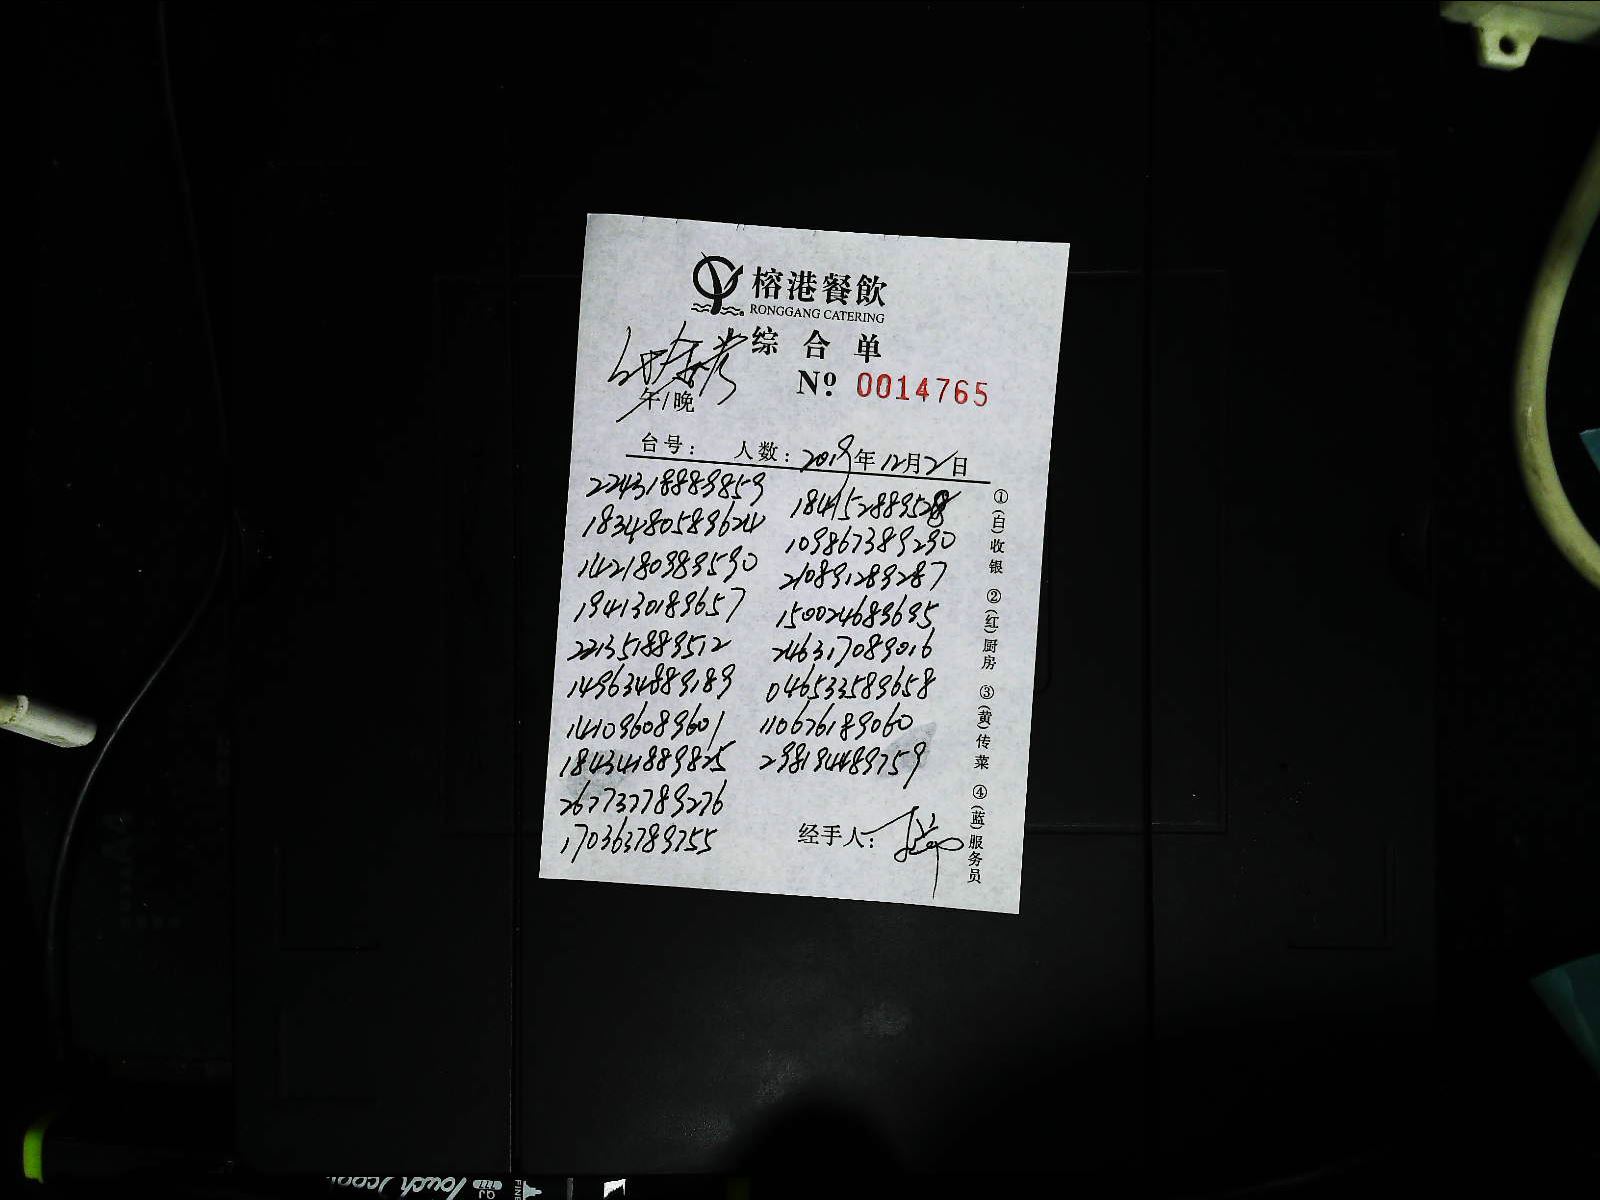 榕港餐飲
RONGGANG CATERING
综合单
No. 0014765
午/晚
台号: 人数: 2019年12月2日
224318889859
183480589624
142180989590
194130189657
221351889512
149634889189
141096089601
184341889825
267737789276
170363789755
184152889528
109867389290
210891289287
150024689695
246317089016
046533589658
110676189060
298194489759
经手人:
①(白)收银 ②(红)厨房 ③(黄)传菜 ④(蓝)服务员